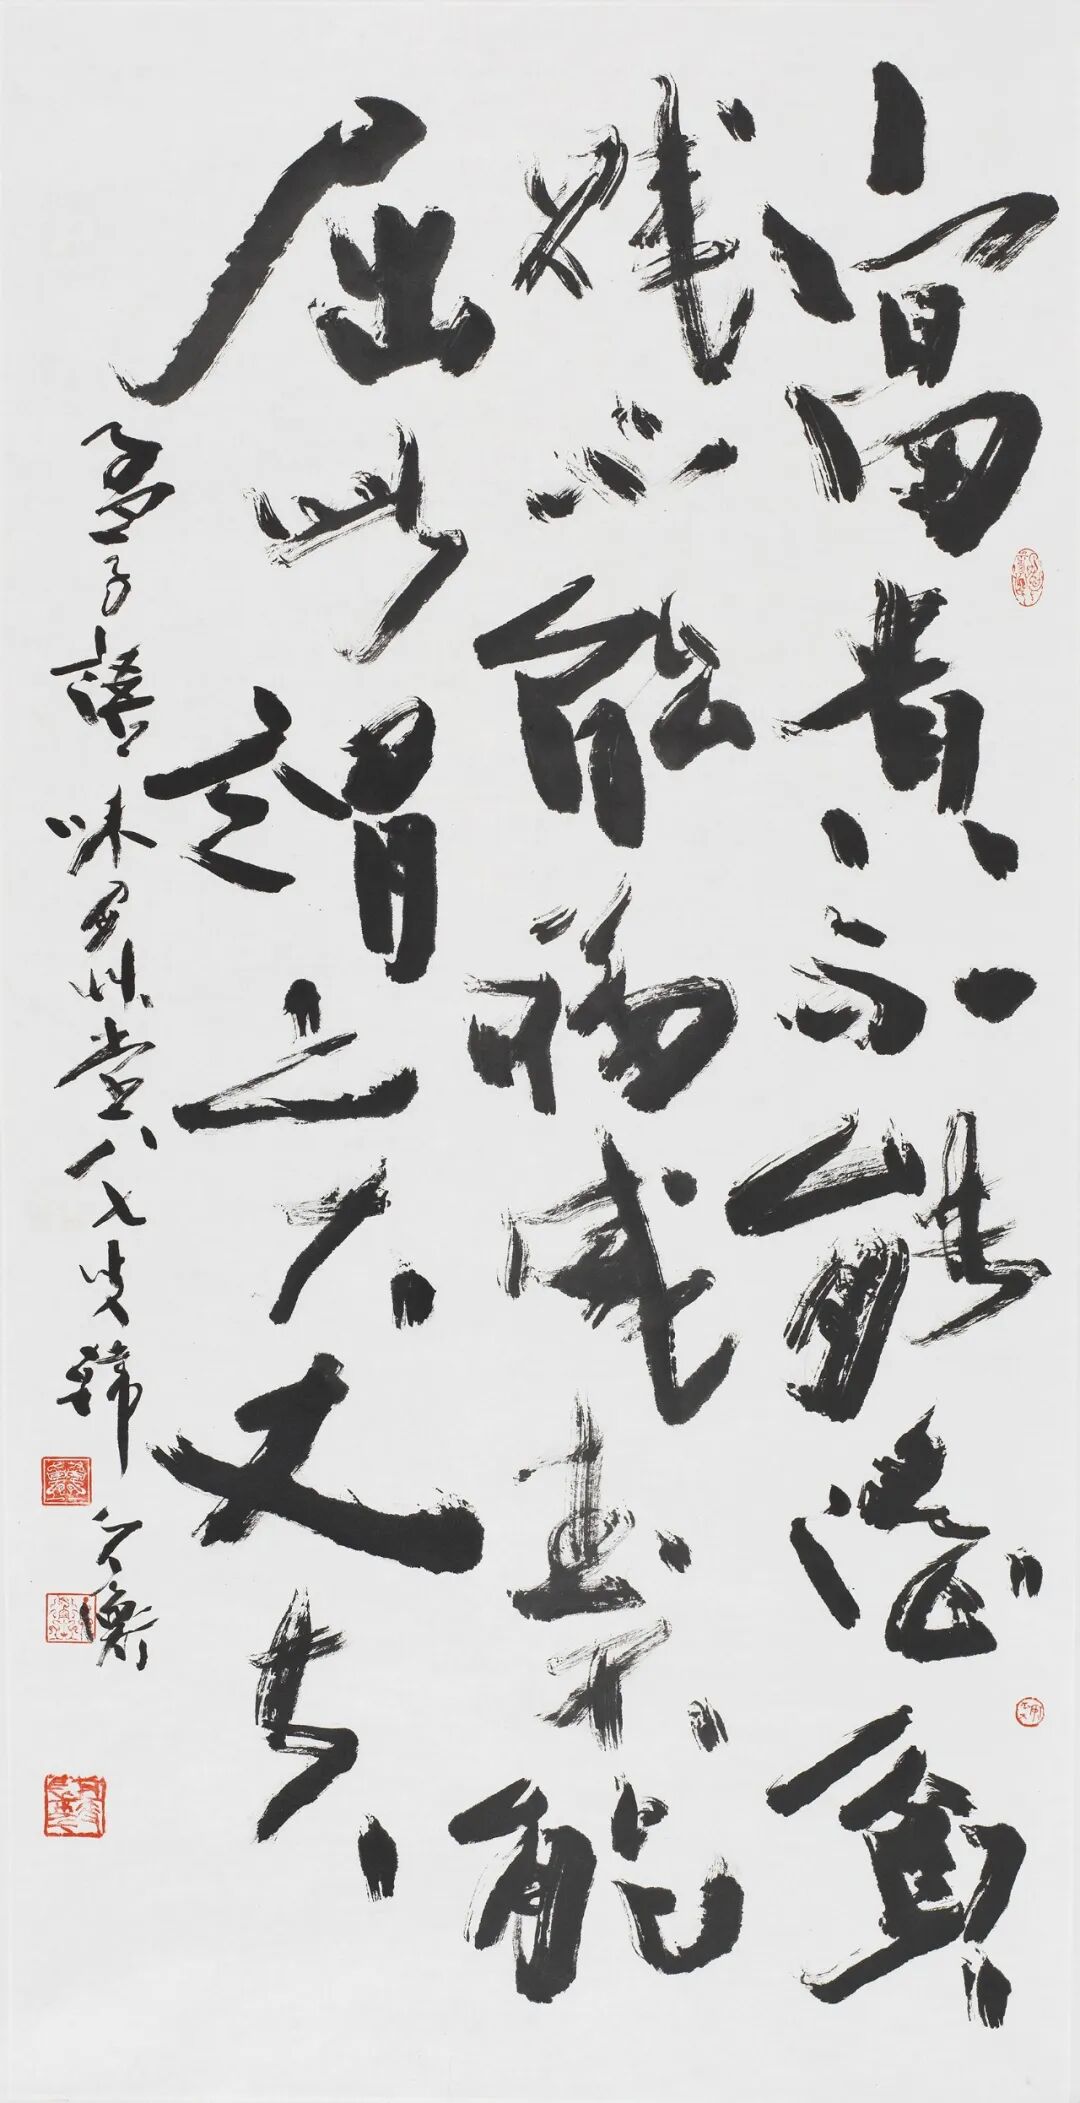 富貴不能淫貧
賤不能移威武不能
屈此謂之大丈夫
孟子 味閒艸堂八七叟韓天衡